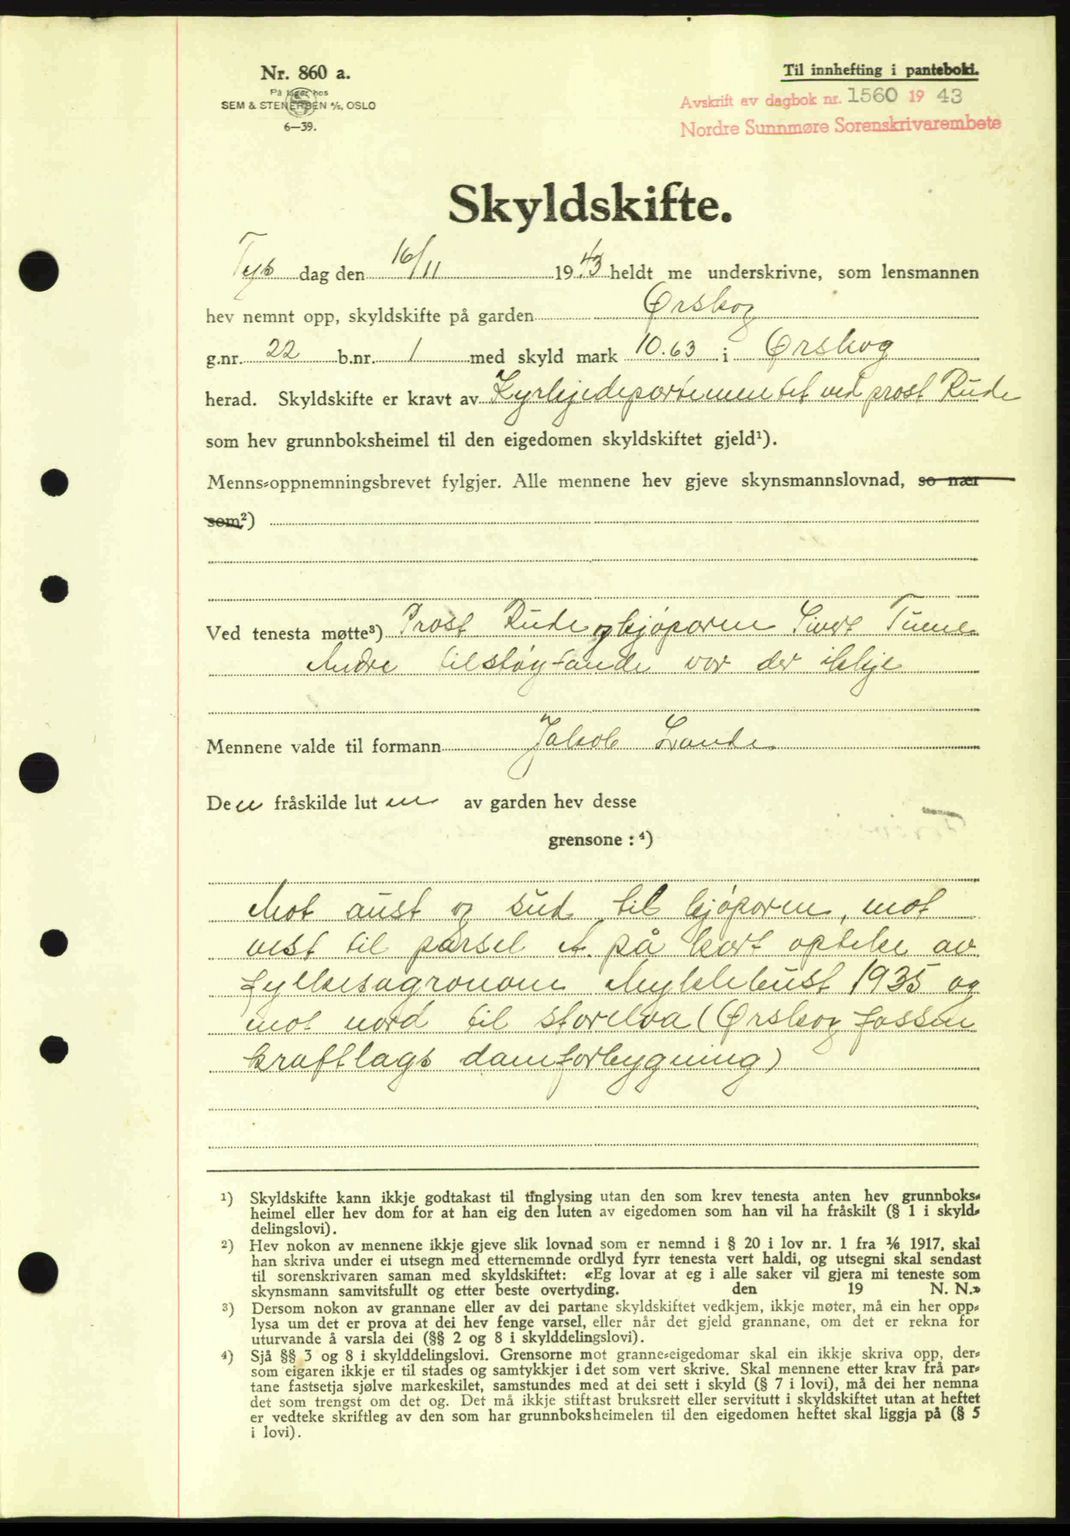 Nr. 860 a.
På lager hos
SEM & STENERSEN A/S, OSLO
6—39.
Til innhefting i panteboki.
Avskrift av dagbok nr. 1560 19 43
Nordre Sunnmøre Sorenskrivarembete
Skyldskifte.
Tys dag den 16/11 1943 heldt me underskrivne, som lensmannen
hev nemnt opp, skyldskifte på garden Ørskog
g.nr. 22 b.nr. 1 med skyld mark 10.63 i Ørskog
herad. Skyldskifte er kravt av Kyrkjedepartementet ved prost Rude
som hev grunnboksheimel til den eigedomen skyldskiftet gjeld¹).
Menns=oppnemningsbrevet fylgjer. Alle mennene hev gjeve skynsmannslovnad, so nær
som²)
Ved tenesta møtte³) Prost Rude og kjøparen Sivert
Andre tilstøytande var der ikkje
Mennene valde til formann Jakob Lande
Den fråskilde luten av garden hev desse
grensone : ⁴)
Mot aust og sud til kjøparen, mot
vest til parsel A. på kart optekе av
fylkesagronom Myklebust 1935 og
mot nord til storelva (Ørskog fossen
kraftlags damforbygning)
¹) Skyldskifte kann ikkje godtakast til tinglysing utan den som krev tenesta anten hev grunnboks=
heimel eller hev dom for at han eig den luten av eigedomen som han vil ha fråskilt (§ 1 i skyld=
delingslovi).
²) Hev nokon av mennene ikkje gjeve slik lovnad som er nemnd i § 20 i lov nr. 1 fra 1/6 1917, skal
han skriva under ei utsegn med etternemnde ordlyd fyrr tenesta vert haldi, og utsegni skal sendast
til sorenskrivaren saman med skyldskiftet: «Eg lovar at eg i alle saker vil gjera mi teneste som
skynsmann samvitsfullt og etter beste overtyding. den 19 N. N.»
³) Dersom nokon av grannane eller av dei partane skyldskiftet vedkjem, ikkje møter, må ein her opp=
lysa um det er prova at dei hev fenge varsel, eller når det gjeld grannane, om det er rekna for
uturvande å varsla dei (§§ 2 og 8 i skylddelingslovi).
⁴) Sjå §§ 3 og 8 i skylddelingslovi. Grensorne mot granne=eigedomar skal ein ikkje skriva opp, der=
som eigaren ikkje er til stades og samtykkjer i det som vert skrive. Skal mennene etter krav frå par=
tane fastsetja sjølve markeskilet, samstundes med at dei sett i skyld (§ 7 i lovi), må dei her nemna
det som trengst om det og. Det må ikkje stiftast bruksrett eller servitutt i skyldskiftet utan at heftet
er vedteke skriftleg av den som har grunnboksheimelen til den eigedomen heftet skal liggja på (§ 5
i lovi).